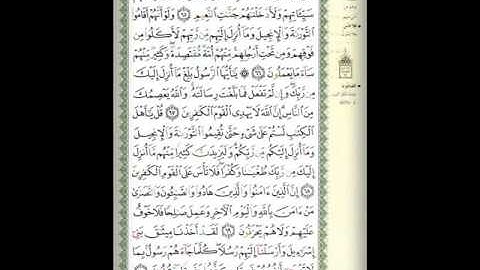 سَيِّـَٔاتِهِمْ وَلَأَدْخَلْنَٰهُمْ جَنَّٰتِ ٱلنَّعِيمِ ۝ وَلَوْ أَنَّهُمْ أَقَامُوا۟
ٱلتَّوْرَىٰةَ وَٱلْإِنجِيلَ وَمَآ أُنزِلَ إِلَيْهِم مِّن رَّبِّهِمْ لَأَكَلُوا۟ مِن
فَوْقِهِمْ وَمِن تَحْتِ أَرْجُلِهِم مِّنْهُمْ أُمَّةٌ مُّقْتَصِدَةٌ وَكَثِيرٌ مِّنْهُمْ
سَآءَ مَا يَعْمَلُونَ ۝ ۞ يَٰٓأَيُّهَا ٱلرَّسُولُ بَلِّغْ مَآ أُنزِلَ إِلَيْكَ
مِن رَّبِّكَ وَإِن لَّمْ تَفْعَلْ فَمَا بَلَّغْتَ رِسَالَتَهُۥ وَٱللَّهُ يَعْصِمُكَ
مِنَ ٱلنَّاسِ إِنَّ ٱللَّهَ لَا يَهْدِى ٱلْقَوْمَ ٱلْكَٰفِرِينَ ۝ قُلْ يَٰٓأَهْلَ
ٱلْكِتَٰبِ لَسْتُمْ عَلَىٰ شَىْءٍ حَتَّىٰ تُقِيمُوا۟ ٱلتَّوْرَىٰةَ وَٱلْإِنجِيلَ
وَمَآ أُنزِلَ إِلَيْكُم مِّن رَّبِّكُمْ وَلَيَزِيدَنَّ كَثِيرًا مِّنْهُم مَّآ أُنزِلَ
إِلَيْكَ مِن رَّبِّكَ طُغْيَٰنًا وَكُفْرًا فَلَا تَأْسَ عَلَى ٱلْقَوْمِ ٱلْكَٰفِرِينَ
۝ إِنَّ ٱلَّذِينَ ءَامَنُوا۟ وَٱلَّذِينَ هَادُوا۟ وَٱلصَّٰبِـُٔونَ وَٱلنَّصَٰرَىٰ
مَنْ ءَامَنَ بِٱللَّهِ وَٱلْيَوْمِ ٱلْءَاخِرِ وَعَمِلَ صَٰلِحًا فَلَا خَوْفٌ
عَلَيْهِمْ وَلَا هُمْ يَحْزَنُونَ ۝ لَقَدْ أَخَذْنَا مِيثَٰقَ بَنِىٓ
إِسْرَٰٓءِيلَ وَأَرْسَلْنَآ إِلَيْهِمْ رُسُلًا كُلَّمَا جَآءَهُمْ رَسُولٌۢ بِمَا